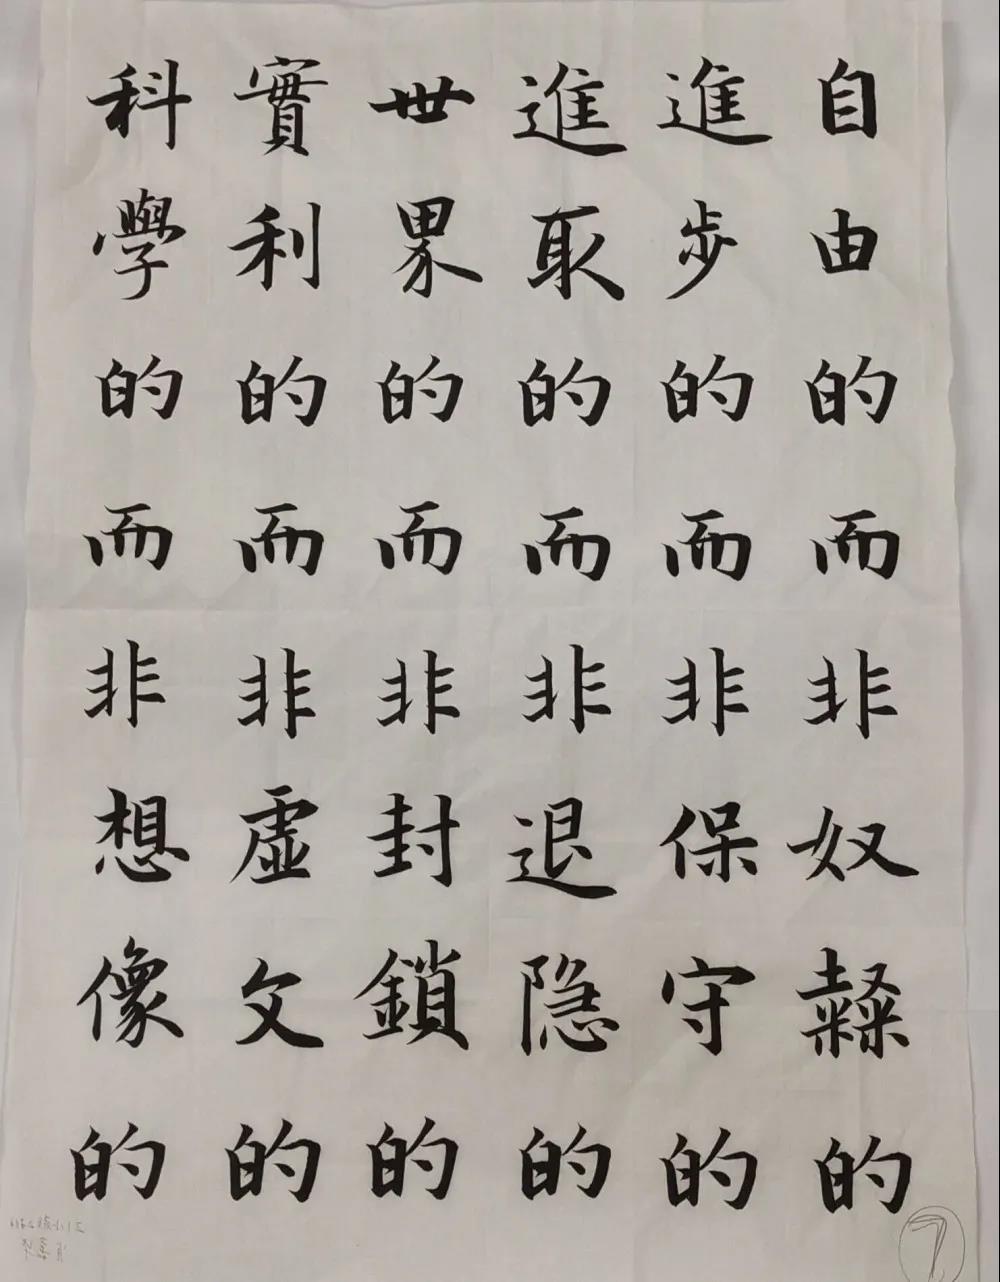 自由的而非奴隸的
進步的而非保守的
進取的而非退隐的
世界的而非封鎖的
實利的而非虛文的
科學的而非想像的
7